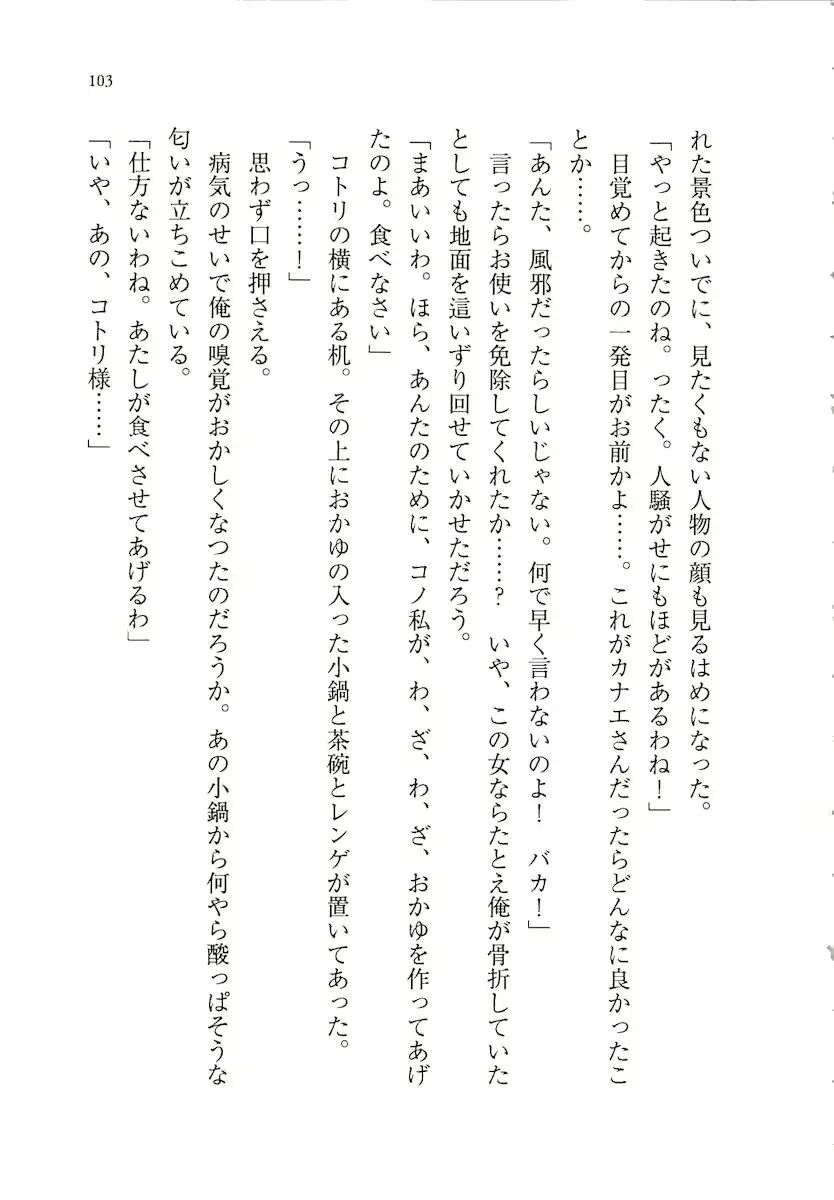 103
れた景色ついでに、見たくもない人物の顔も見るはめになった。
「やっと起きたのね。ったく。人騒がせにもほどがあるわね！」
目覚めてからの一発目がお前かよ……。これがカナエさんだったらどんなに良かったこ
とか……。
「あんた、風邪だったらしいじゃない。何で早く言わないのよ！　バカ！」
言ったらお使いを免除してくれたか……？　いや、この女ならたとえ俺が骨折していた
としても地面を這いずり回せていかせただろう。
「まあいいわ。ほら、あんたのために、コノ私が、わ、ざ、わ、ざ、おかゆを作ってあげ
たのよ。食べなさい」
コトリの横にある机。その上におかゆの入った小鍋と茶碗とレンゲが置いてあった。
「うっ……！」
思わず口を押さえる。
病気のせいで俺の嗅覚がおかしくなつたのだろうか。あの小鍋から何やら酸っぱそうな
匂いが立ちこめている。
「仕方ないわね。あたしが食べさせてあげるわ」
「いや、あの、コトリ様……」